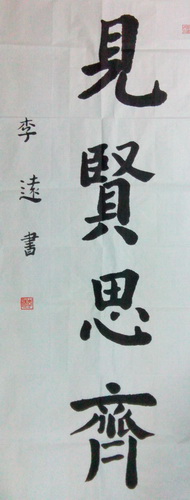 見賢思齊
李遠書